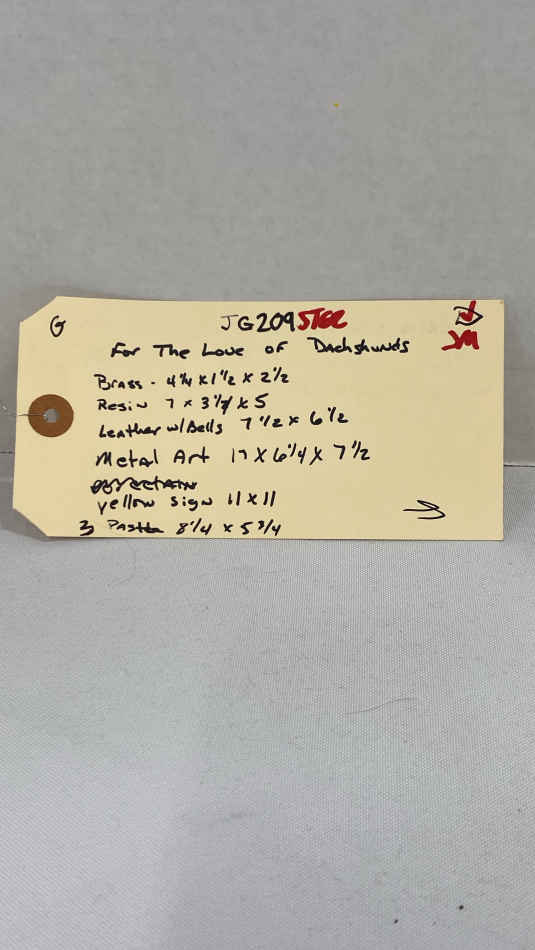 G
JG209
For The Love of Dachshunds
Brass - 4 1/4 x 1 1/2 x 2 1/2
Resin 7 x 3 1/4 x 5
Leather w/Bells 7 1/2 x 6 1/2
Metal Art 17 x 6 1/4 x 7 1/2
yellow sign 11 x 11
3 8 1/4 x 5 3/4